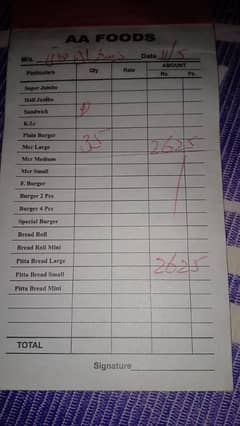 AA FOODS
M/s. Date 11/5
Particulars Qty Rate AMOUNT
Rs. Ps.
Super Jumbo
Half Jumbo
Sandwich
K.Ez
Plain Burger
Mcr Large 35 2625
Mcr Medium
Mcr Small
F. Burger
Burger 2 Pcs
Burger 4 Pcs
Special Burger
Bread Roll
Bread Roll Mini
Pitta Bread Large 2625
Pitta Bread Small
Pitta Bread Mini
TOTAL
Signature